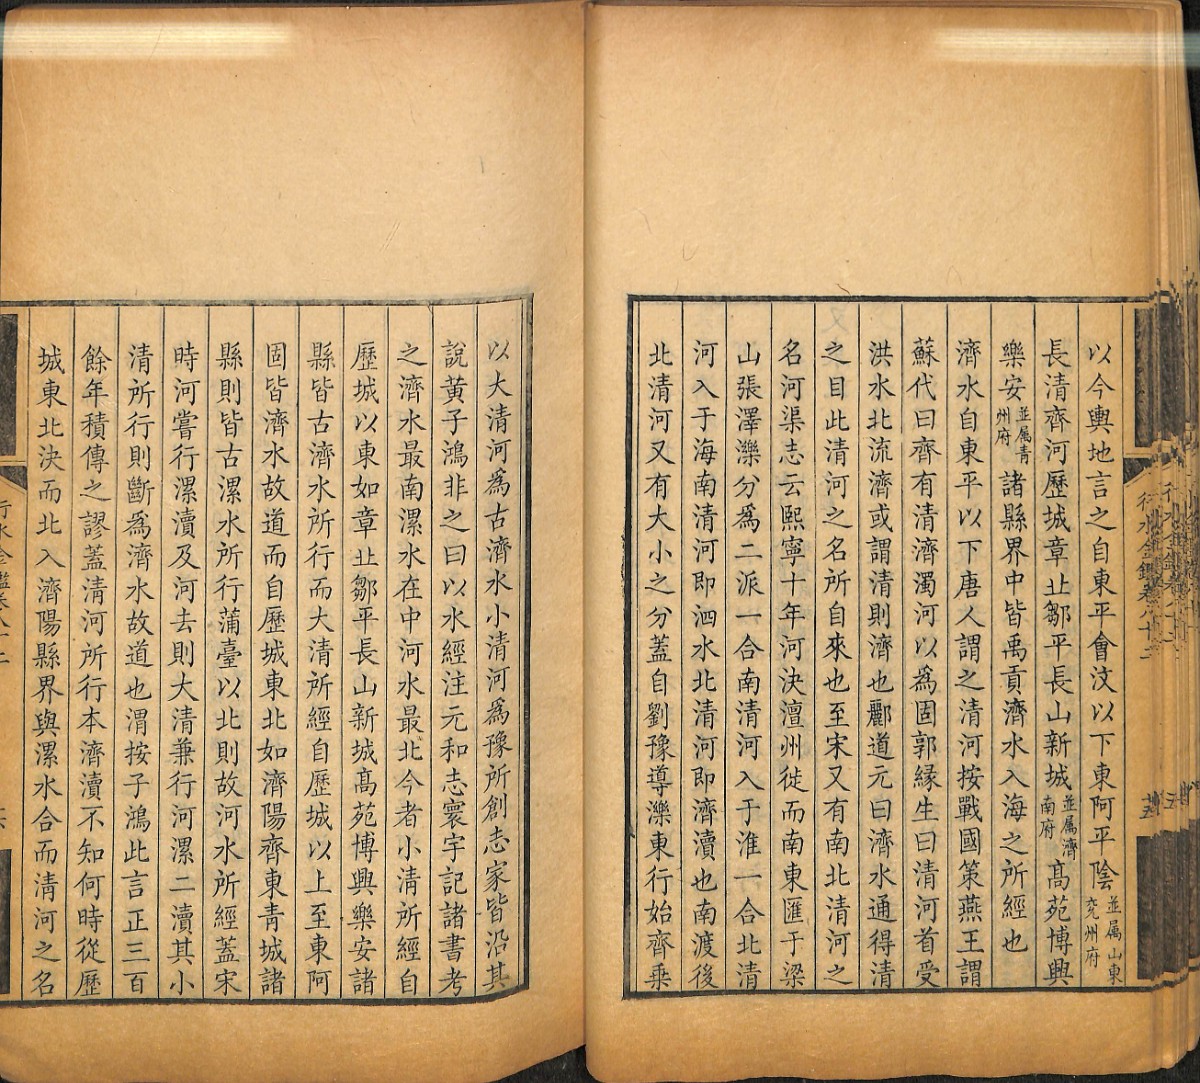 以今輿地言之自東平會汶以下東阿平陰並属山東兖州府
長清齊河歷城章丘鄒平長山新城並属濟南府高苑博興
樂安並属青州府諸縣界中皆禹貢濟水入海之所經也
濟水自東平以下唐人謂之清河按戰國策燕王謂
蘇代曰齊有清濟濁河以為固郭緣生曰清河首受
洪水北流濟或謂清則濟也酈道元曰濟水通得清
之目此清河之名所自來也至宋又有南北清河之
名河渠志云熙寧十年河決澶州徙而南東匯于梁
山張澤濼分為二派一合南清河入于淮一合北清
河入于海南清河即泗水北清河即濟瀆也南渡後
北清河又有大小之分蓋自劉豫導濼東行始齊乘
以大清河為古濟水小清河為豫所創志家皆沿其
說黄子鴻非之曰以水經注元和志寰宇記諸書考
之濟水最南漯水在中河水最北今者小清所經自
歷城以東如章丘鄒平長山新城高苑博興樂安諸
縣皆古濟水所行而大清所經自歷城以上至東阿
固皆濟水故道而自歷城東北如濟陽齊東青城諸
縣則皆古漯水所行蒲臺以北則故河水所經蓋宋
時河嘗行漯瀆及河去則大清兼行河漯二瀆其小
清所行則斷為濟水故道也渭按子鴻此言正三百
餘年積傳之謬蓋清河所行本濟瀆不知何時從歷
城東北決而北入濟陽縣界與漯水合而清河之名
行水金鑑卷八十二